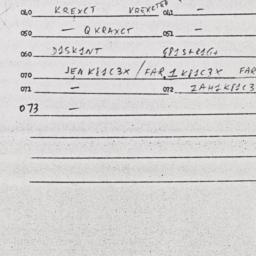 040 KREXCT KREXCTED 041 —
050 — QKRAXCT 051 —
060 D1SK1NT
070 JEN K81C3X / FAR 1 K81C3X FAR
071 — 072 2AH1K81C3
073 —